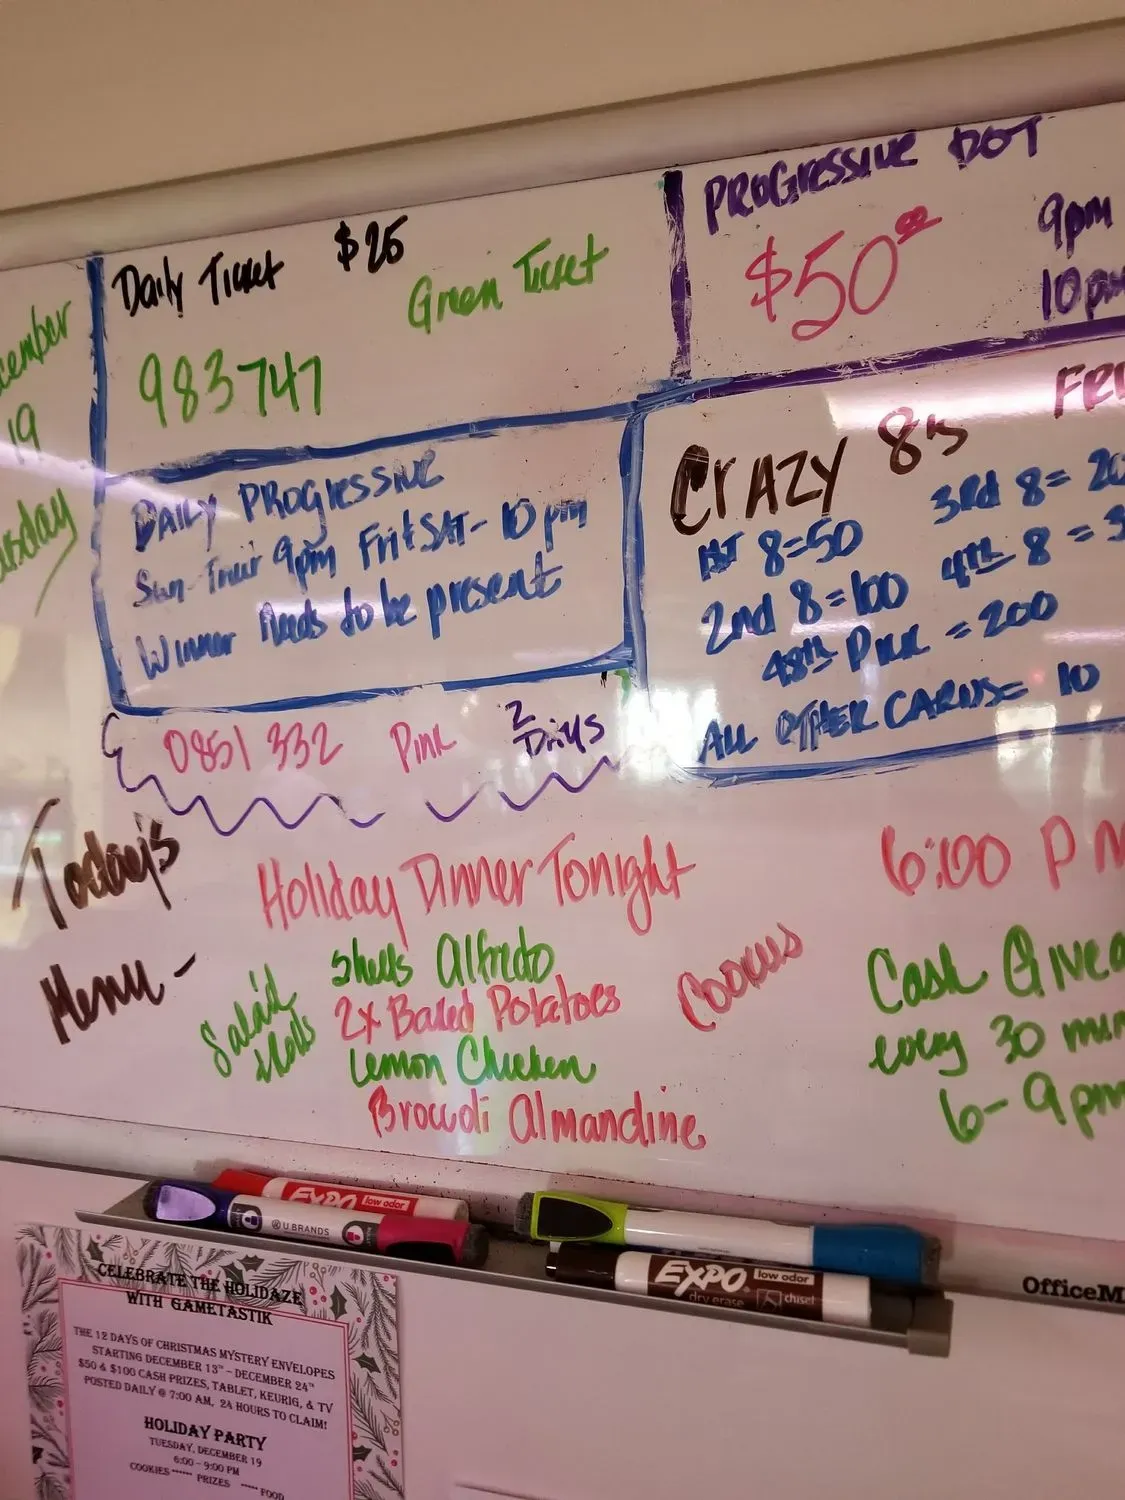 cember
19
sday
Daily Ticket $25
Green Ticket
983747
DAILY PROGRESSIVE
Sun-Thur 9pm Fri & SAT - 10pm
Winner Needs to be present
0851332 Pink 2 DAYS
PROGRESSIVE DOT
$50.00
9pm
10pm
CRAZY 8s FRI
1ST 8=50
2nd 8=100
3Rd 8=20
4th 8=3
48th Pick =200
ALL OTHER CARDS= 10
Today's
Menu -
Holiday Dinner Tonight
Salad
Rolls
Shells Alfredo
2x Baked Potatoes
Lemon Chicken
Broccoli Almandine
Cookies
6:00 PM
Cash Givea
every 30 min
6-9pm
EXPO low odor
U BRANDS
EXPO low odor
dry erase chisel
OfficeM
CELEBRATE THE HOLIDAZE
WITH GAMETASTIK
THE 12 DAYS OF CHRISTMAS MYSTERY ENVELOPES
STARTING DECEMBER 13TH – DECEMBER 24TH
$50 & $100 CASH PRIZES, TABLET, KEURIG, & TV
POSTED DAILY @ 7:00 AM, 24 HOURS TO CLAIM!
HOLIDAY PARTY
TUESDAY, DECEMBER 19
6:00 – 9:00 PM
COOKIES ****** PRIZES ***** FOOD